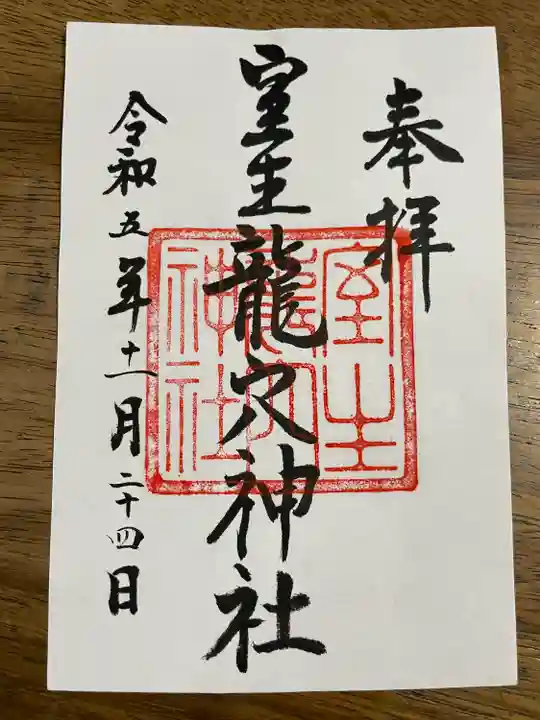 奉拝
室生龍穴神社
室生龍穴神社
令和五年十一月二十四日